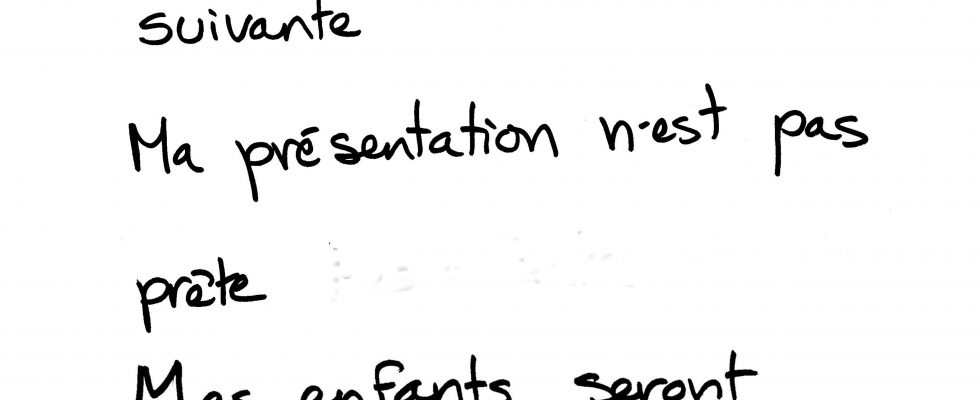 suivante
Ma présentation n'est pas
prête
Mes enfants seront